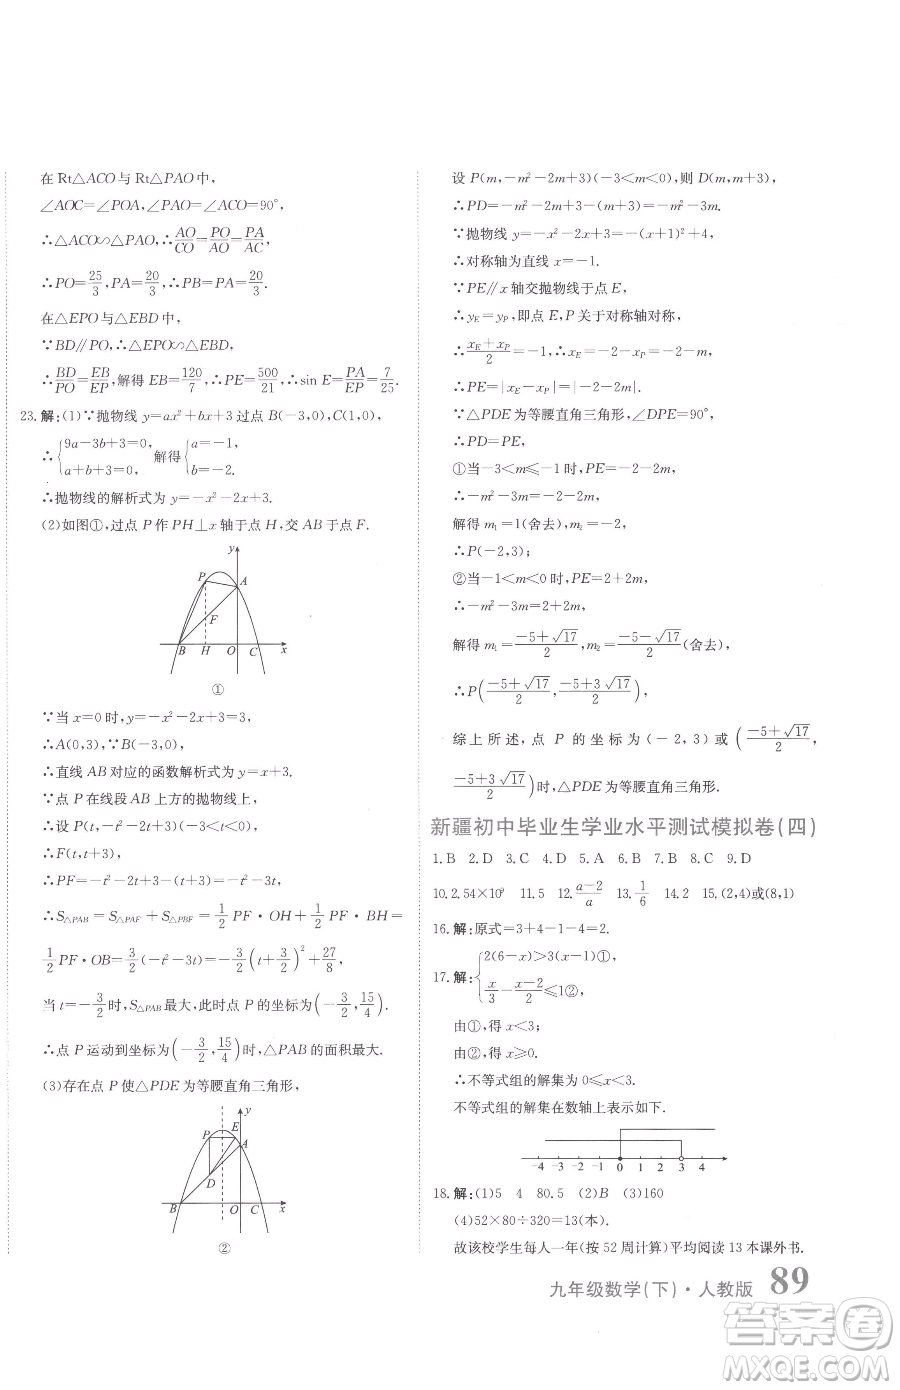 在 Rt△ACO 与 Rt△PAO 中,
∠AOC=∠POA,∠PAO=∠ACO=90°,
∴△ACO∽△PAO,∴AO/CO=PO/AO=PA/AC.
∴PO=25/3,PA=20/3,∴PB=PA=20/3.
在△EPO 与△EBD 中,
∵BD∥PO,∴△EPO∽△EBD,
∴BD/PO=EB/EP,解得 EB=120/7,∴PE=500/21,∴sin E=PA/EP=7/25.
23.解:(1)∵抛物线 y=ax²+bx+3 过点 B(-3,0),C(1,0),
∴{9a-3b+3=0, a+b+3=0, 解得{a=-1, b=-2.
∴抛物线的解析式为 y=-x²-2x+3.
(2)如图①,过点 P 作 PH⊥x 轴于点 H,交 AB 于点 F.
y
P
A
F
B H O C x
①
∵当 x=0 时,y=-x²-2x+3=3,
∴A(0,3),∵B(-3,0),
∴直线 AB 对应的函数解析式为 y=x+3.
∵点 P 在线段 AB 上方的抛物线上,
∴设 P(t,-t²-2t+3)(-3<t<0),
∴F(t,t+3),
∴PF=-t²-2t+3-(t+3)=-t²-3t,
∴S△PAB=S△PAF+S△PBF=1/2PF·OH+1/2PF·BH=
1/2PF·OB=3/2(-t²-3t)=-3/2(t+3/2)²+27/8
当 t=-3/2时,S△PAB最大,此时点 P 的坐标为(-3/2,15/4).
∴点 P 运动到坐标为(-3/2,15/4)时,△PAB 的面积最大.
(3)存在点 P 使△PDE 为等腰直角三角形,
y
P E
A
D
B O C x
②
设 P(m,-m²-2m+3)(-3<m<0),则 D(m,m+3),
∴PD=-m²-2m+3-(m+3)=-m²-3m.
∵抛物线 y=-x²-2x+3=-(x+1)²+4,
∴对称轴为直线 x=-1.
∵PE∥x 轴交抛物线于点 E,
∴yE=yP,即点 E,P 关于对称轴对称,
∴(xE+xP)/2=-1,∴xE=-2-xP=-2-m,
∴PE=|xE-xP|=|-2-2m|.
∵△PDE 为等腰直角三角形,∠DPE=90°,
∴PD=PE,
①当-3<m≤-1 时,PE=-2-2m,
∴-m²-3m=-2-2m,
解得 m₁=1(舍去),m₂=-2,
∴P(-2,3);
②当-1<m<0 时,PE=2+2m,
∴-m²-3m=2+2m,
解得 m₁=(-5+√17)/2,m₂=(-5-√17)/2(舍去),
∴P((-5+√17)/2,(-5+3√17)/2),
综上所述,点 P 的坐标为(-2,3)或((-5+√17)/2,
(-5+3√17)/2)时,△PDE 为等腰直角三角形.
新疆初中毕业生学业水平测试模拟卷(四)
1.B 2.D 3.C 4.D 5.A 6.B 7.B 8.C 9.D
10.2.54×10⁹ 11.5 12.(a-2)/a 13.1/6 14.2 15.(2,4)或(8,1)
16.解:原式=3+4-1-4=2.
17.解:{2(6-x)>3(x-1)①, x/3-(x-2)/2≤1②,
由①,得 x<3;
由②,得 x≥0.
∴不等式组的解集为 0≤x<3.
不等式组的解集在数轴上表示如下.
-4 -3 -2 -1 0 1 2 3 4
18.解:(1)5 4 80.5 (2)B (3)160
(4)52×80÷320=13(本).
故该校学生每人一年(按 52 周计算)平均阅读 13 本课外书.
九年级数学(下)·人教版 89
答案圈
MXQE.COM